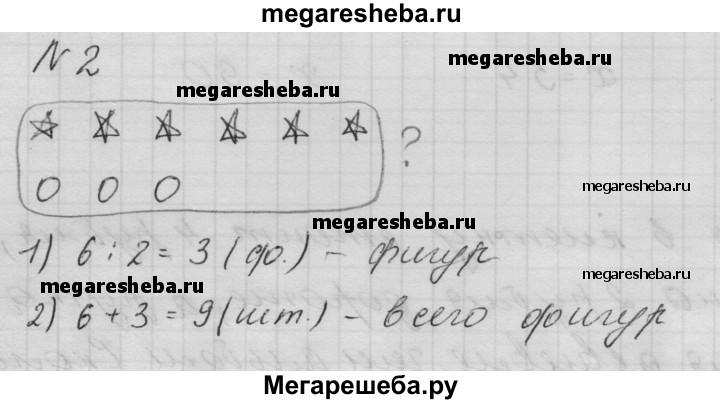 megaresheba.ru
N 2
megaresheba.ru
megaresheba.ru
?
megaresheba.ru
megaresheba.ru
1) 6 : 2 = 3 (ф.) – фигур
megaresheba.ru
megaresheba.ru
2) 6 + 3 = 9 (шт.) – всего фигур
Мегарешеба.ру